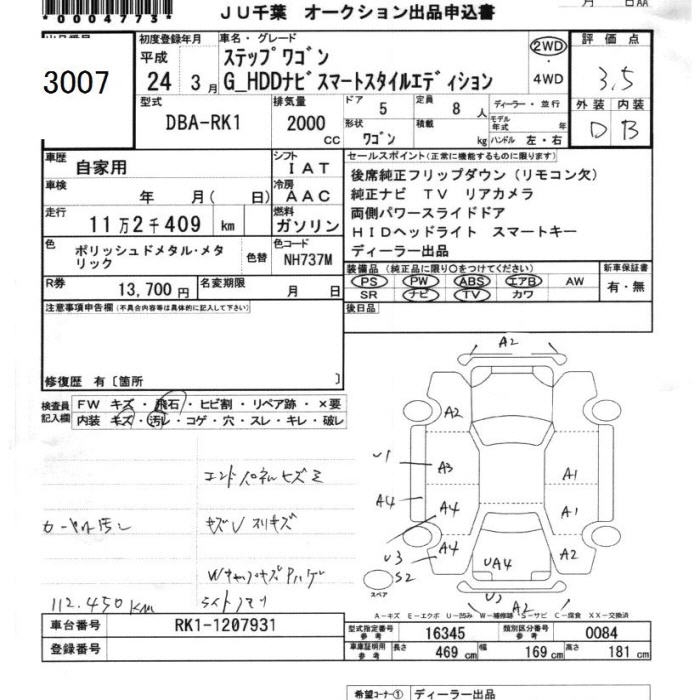 *0004773*
JU千葉 オークション出品申込書
月 日AA
3007
初度登録年月
平成
24 3月
車名・グレード
ステップワゴン
G_HDDナビスマートスタイルエディション
2WD
4WD
評価点
3.5
外装 内装
D B
型式
DBA-RK1
排気量
2000
cc
ドア 5
形状
ワゴン
定員 8 人
積載 kg
ディーラー・並行
モデル年式 年
ハンドル 左・右
車歴
自家用
シフト
IAT
車検
年 月( 日)
冷房
AAC
走行
11万2千409 km
燃料
ガソリン
色
ポリッシュドメタル・メタ
リック
色替
色コード
NH737M
R券
13,700円
名変期限
月 日
セールスポイント(正常に機能するものに限ります)
後席純正フリップダウン(リモコン欠)
純正ナビ TV リアカメラ
両側パワースライドドア
HIDヘッドライト スマートキー
ディーラー出品
装備品(純正品に限り○をつけてください)
PS PW ABS エアB AW
SR ナビ TV カワ
新車保証書
有・無
注意事項申告欄(不具合内容等は具体的に記入して下さい)
後日品
修復歴 有〔箇所 〕
検査員
記入欄
FW キズ・飛石・ヒビ割・リペア跡・×要
内装 キズ・汚レ・コゲ・穴・スレ・キレ・破レ
112.450km
A2
A2
U1
A3
A1
A4
A4
A1
U3
A4
UA4
A2
S2
スペア
A2
A-キズ E-エクボ U-凹み W-補修跡 S-サビ C-腐食 XX-交換済
車台番号
RK1-1207931
登録番号
型式指定番号
参考
16345
類別区分番号
参考
0084
車庫証明用
参考
長さ 469 cm 幅 169 cm 高さ 181 cm
希望コーナー① ディーラー出品